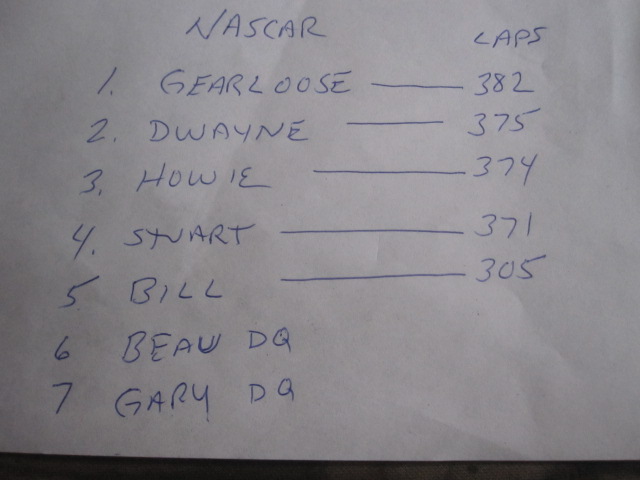 NASCAR LAPS
1. GEARLOOSE — 382
2. DWAYNE — 375
3. HOWIE — 374
4. STUART — 371
5 BILL — 305
6 BEAU DQ
7 GARY DQ